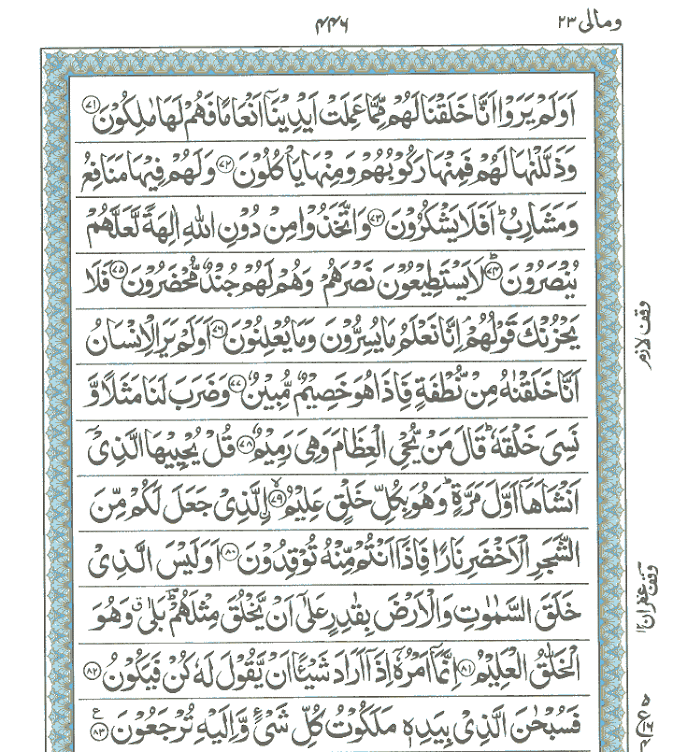 ومالی ۲۳
۴۴۶
اَوَلَمْ یَرَوْا اَنَّا خَلَقْنَا لَهُمْ مِّمَّا عَمِلَتْ اَیْدِیْنَاۤ اَنْعَامًا فَهُمْ لَهَا مٰلِكُوْنَ ۝۷۱
وَذَلَّلْنٰهَا لَهُمْ فَمِنْهَا رَكُوْبُهُمْ وَمِنْهَا یَاْكُلُوْنَ ۝۷۲ وَلَهُمْ فِیْهَا مَنَافِعُ
وَمَشَارِبُ ؕ اَفَلَا یَشْكُرُوْنَ ۝۷۳ وَاتَّخَذُوْا مِنْ دُوْنِ اللّٰهِ اٰلِهَةً لَّعَلَّهُمْ
یُنْصَرُوْنَ ؕ۝۷۴ لَا یَسْتَطِیْعُوْنَ نَصْرَهُمْ وَهُمْ لَهُمْ جُنْدٌ مُّحْضَرُوْنَ ۝۷۵ فَلَا
یَحْزُنْكَ قَوْلُهُمْ ۘ اِنَّا نَعْلَمُ مَا یُسِرُّوْنَ وَمَا یُعْلِنُوْنَ ۝۷۶ اَوَلَمْ یَرَ الْاِنْسَانُ
اَنَّا خَلَقْنٰهُ مِنْ نُّطْفَةٍ فَاِذَا هُوَ خَصِیْمٌ مُّبِیْنٌ ۝۷۷ وَضَرَبَ لَنَا مَثَلًا وَّ
نَسِیَ خَلْقَهٗ ؕ قَالَ مَنْ یُّحْیِ الْعِظَامَ وَهِیَ رَمِیْمٌ ۝۷۸ قُلْ یُحْیِیْهَا الَّذِیْۤ
اَنْشَاَهَاۤ اَوَّلَ مَرَّةٍ ؕ وَهُوَ بِكُلِّ خَلْقٍ عَلِیْمُ ۙ۝۷۹ اِ۟لَّذِیْ جَعَلَ لَكُمْ مِّنَ
الشَّجَرِ الْاَخْضَرِ نَارًا فَاِذَاۤ اَنْتُمْ مِّنْهُ تُوْقِدُوْنَ ۝۸۰ اَوَلَیْسَ الَّذِیْ
خَلَقَ السَّمٰوٰتِ وَالْاَرْضَ بِقٰدِرٍ عَلٰۤی اَنْ یَّخْلُقَ مِثْلَهُمْ ؕ بَلٰی ۗ وَهُوَ
الْخَلّٰقُ الْعَلِیْمُ ۝۸۱ اِنَّمَاۤ اَمْرُهٗۤ اِذَاۤ اَرَادَ شَیْـًٔا اَنْ یَّقُوْلَ لَهٗ كُنْ فَیَكُوْنُ ۝۸۲
فَسُبْحٰنَ الَّذِیْ بِیَدِهٖ مَلَكُوْتُ كُلِّ شَیْءٍ وَّاِلَیْهِ تُرْجَعُوْنَ ۝۸۳ ع
وقف لازم
وقف غفران ۱۲
ع